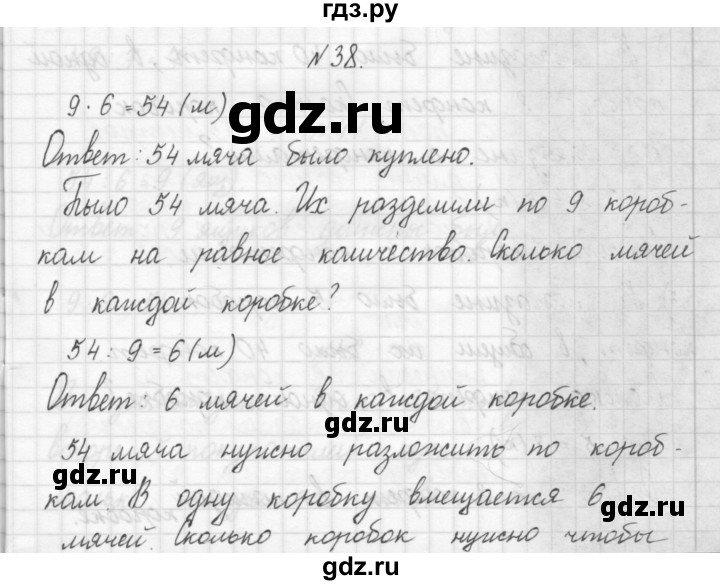 гдз.ру
№38.
9 · 6 = 54 (м)
Ответ: 54 мяча было куплено.
Было 54 мяча. Их разделили по 9 короб-
кам на равное количество. Сколько мячей
в каждой коробке?
54 : 9 = 6 (м)
Ответ: 6 мячей в каждой коробке.
54 мяча нужно разложить по короб-
кам В одну коробку вмещается 6
мячей. Сколько коробок нужно чтобы
gdz.ru
gdz.ru
gdz.ru
gdz.ru
gdz.ru
gdz.ru